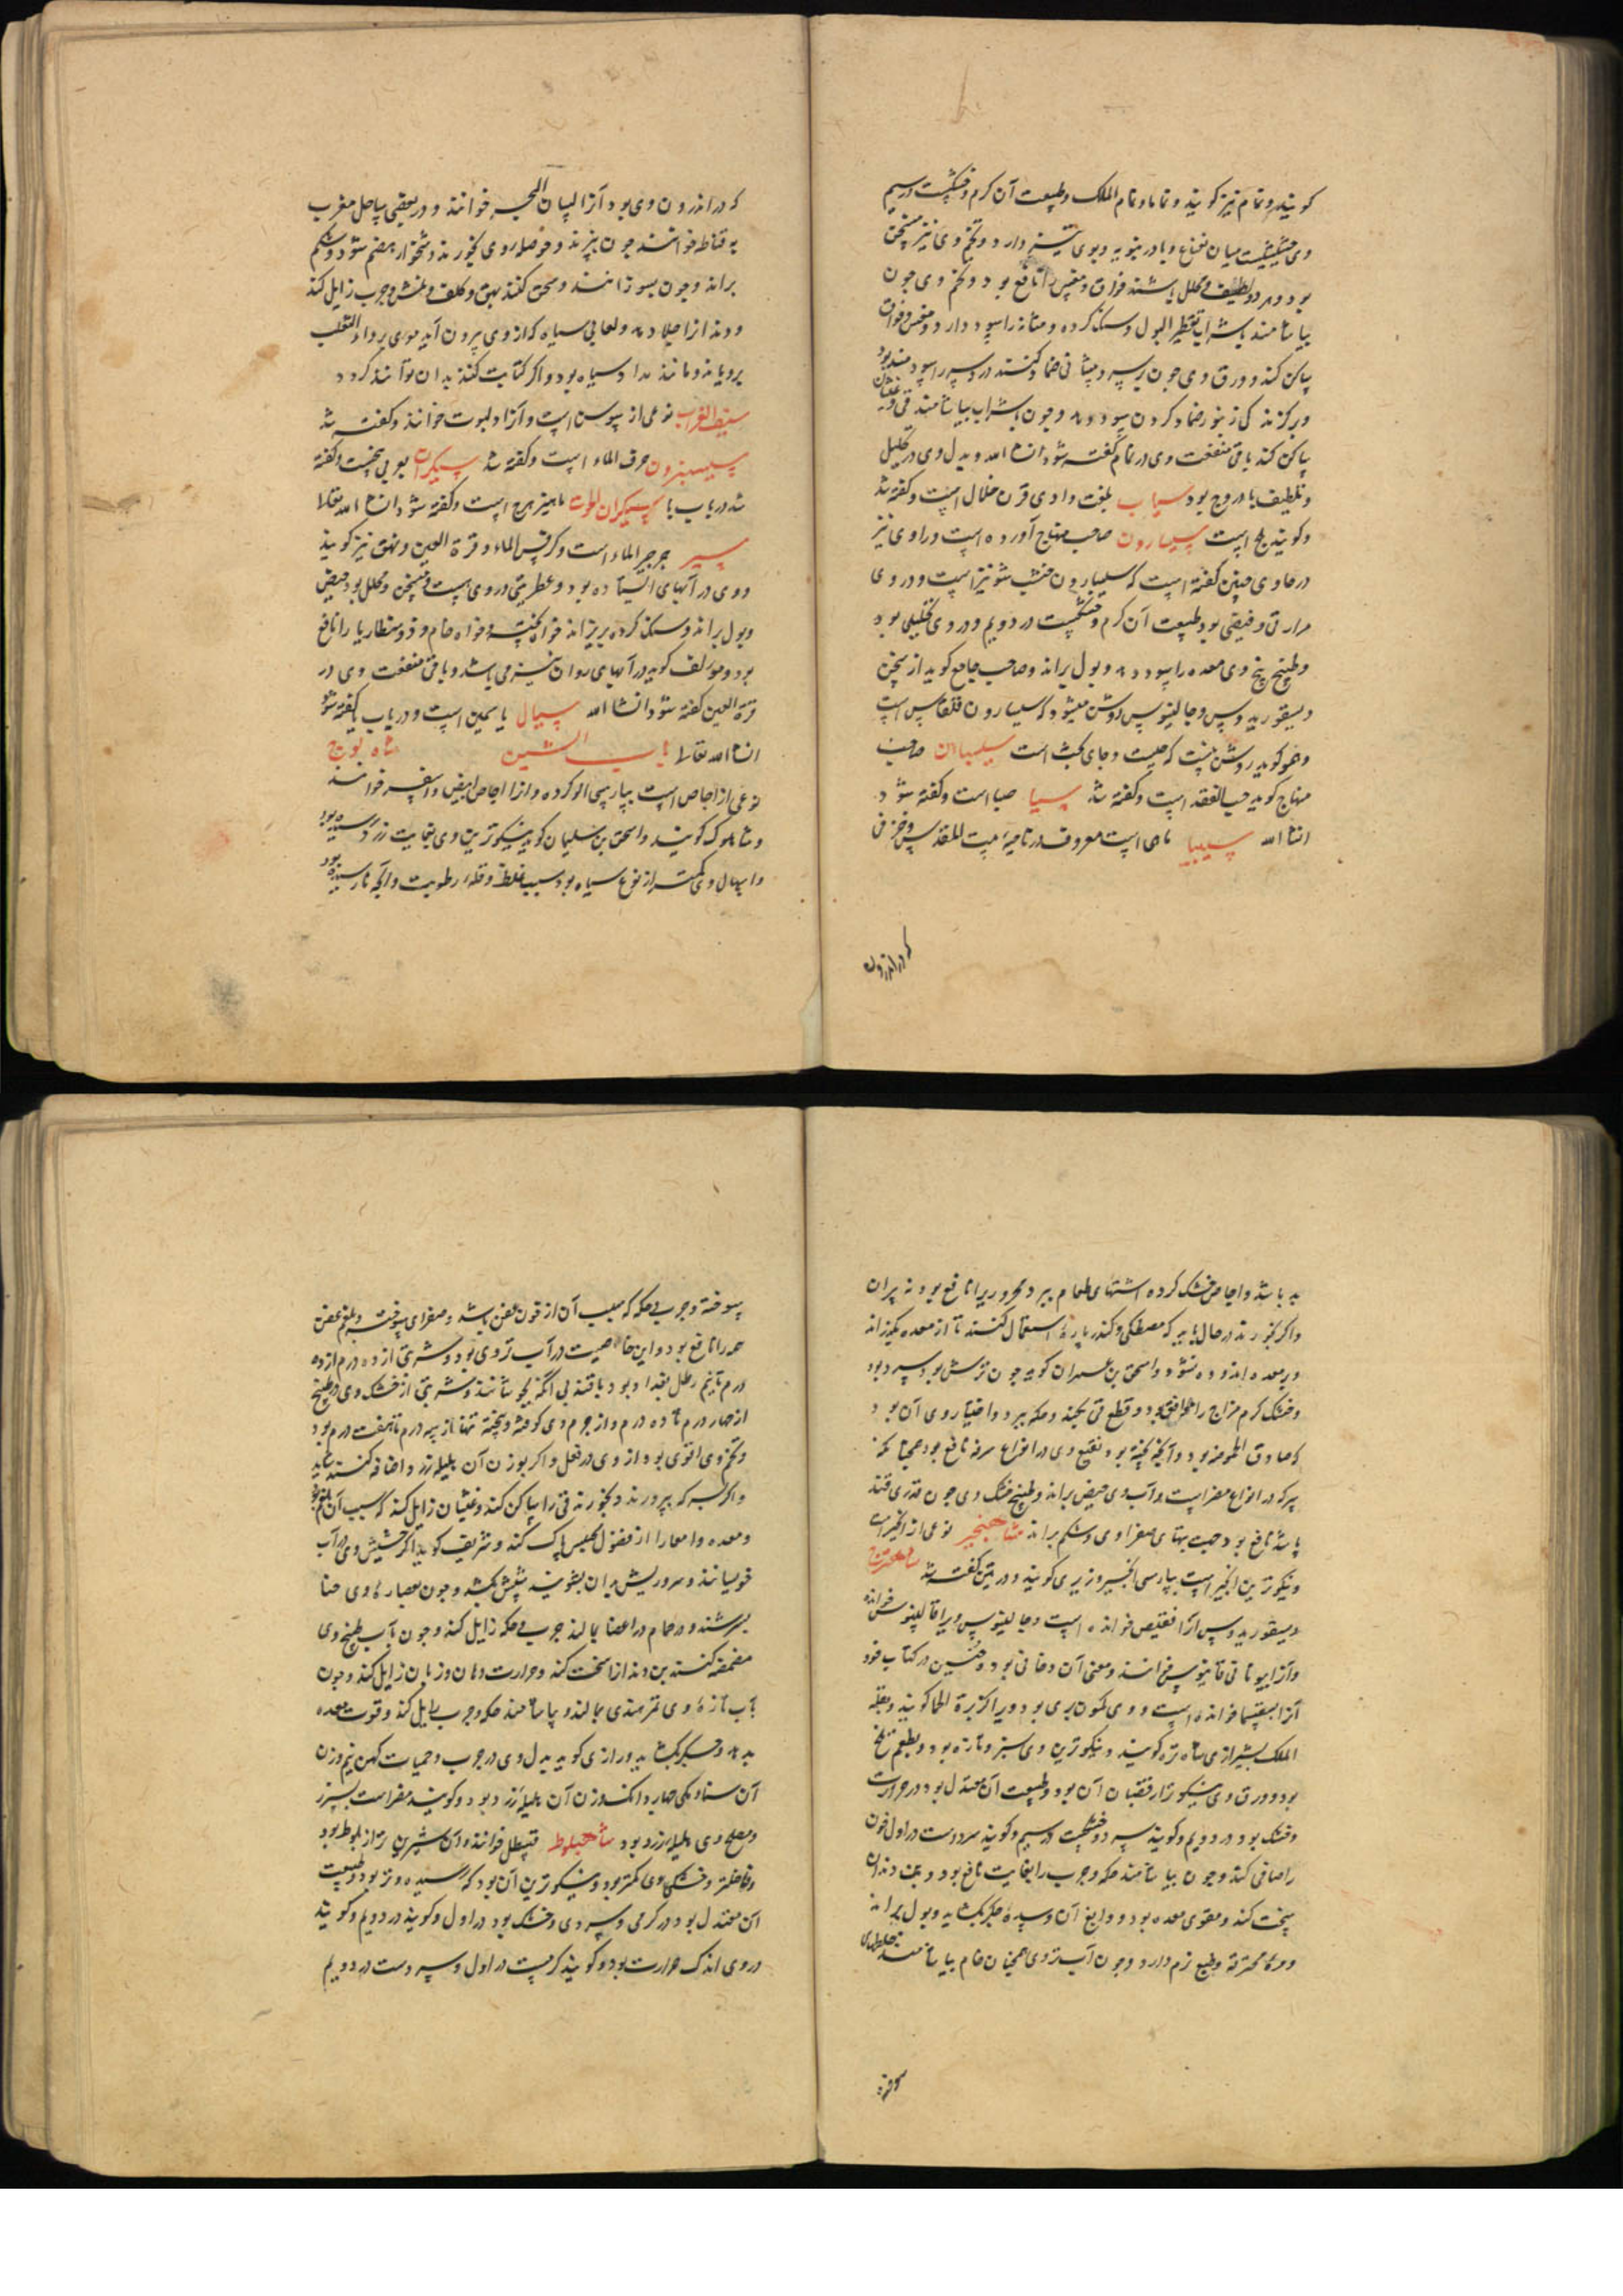 کویند و نمام نیز کویند و نماما و نمام الملک و طبیعت آن کرم و خشکست در سیم
وی حشیشیست میان نعناع و بادرنبویه و بوی تیز دارد و تخم وی نیز مسخن
بود و هر دو لطیف و محلل باشند فواق و مغص را نافع بود و تخم وی چون
بیاشامند بشراب تقطیر البول و سنک کرده و مثانه را سود دارد و مغص و فواق
ساکن کند و ورق وی چون بر سر و پیشانی ضماد کنند درد سر را سودمند بود
و بر کزندکی زنبور ضماد کردن سود دهد و چون بشراب بیاشامند قی و غثیان
ساکن کند باقی منفعت وی در نمام کفته شود انشا الله و بدل وی در تحلیل
و تلطیف بادروج بود سیاب بلغت وادی قری خلال است و کفته شد
و کویند بلح است سیسارون صاحب منهاج آورده است و رازی نیز
در حاوی چنین کفته است که سیسارون خشب شونیز است و در وی
مرارتی و قبضی بود طبیعت آن کرم و خشکست در دویم و در وی تحلیلی بود
و طبیخ بیخ وی معده را سود دهد و بول براند و صاحب جامع کوید از سخن
دیسقوریدوس و جالینوس روشن میشود که سیسارون قلقاس است
و هم کوید روشن نیست که چیست و جای بحث است سیسبان صاحب
منهاج کوید حب الفقد است و کفته شد سیا صبا است و کفته شود
انشا الله سیبیا ماهی است معروف در ناحیه بیت المقدس و خزفی
که در اندرون
که در اندرون وی بود آنرا لسان البحر خوانند و در بعضی ساحل مغرب
به قناطه خوانند چون بپزند و خوصلهٔ وی بخورند دشخوار هضم شود و شکم
براند و چون بسوزانند و سحق کنند بهق و کلف و نمش و جرب زایل کند
و دندانرا جلا دهد و لعابی سیاه که از وی بیرون آید موی بر داء الثعلب
برویاند و مانند مداد سیاه بود و اکر کتابت کنند بدان توانند کرد
سیف الغراب نوعی از سوسن است و آنرا دلبوث خوانند و کفته شد
سیسنبرون حرف الماء است و کفته شد سیکران بعربی بنجست و کفته
شد در باب با سیکران الحوت ماهیزهرج است و کفته شود انشا الله تعالی
سیر جرجیر الماء است و کرفس الماء و قرة العین و نهق نیز کویند
و وی در آبهای ایستاده بود و عطریتی در وی هست و مسخن و محلل بود حیض
و بول براند و سنک کرده بریزاند خواه پخته و خواه خام و ذوسنطاریا را نافع
بود و مولف کوید در آبهای روان نیز می باشد و باقی منفعت وی در
قرة العین کفته شود انشا الله سیال یاسمین است و در باب یا کفته شود
انشا الله تعالی باب الشین شاه لوج
نوعی از اجاص است بپارسی الو کرده و آنرا اجاص ابیض و اصفر خوانند
و شاهلوک کویند و اسحق بن سلیمان کوید نیکوترین وی بغایت زرد رسیده بود
و اسهال وی کمتر از نوع سیاه بود سبب غلظ و قله رطوبت و آنچه نارسیده بود
بد باشد و اجاص خشک کرده اشتهای طعام ببرد و محروریرا نافع بود نه پیران
و اکر بخورند در حال باید که مصطکی و کندر پارهٔ استعمال کنند تا از معده بکذراند
و بر معده اندوده نشود و اسحق بن عمران کوید چون ترش بود سرد بود
و خشک کرم مزاج را موافق بود و قطع قی بکند و حکه ببرد و اختیار وی آن بود
که صادق الحموضه بود و آنکه پخته بود نقیع وی در انواع سرفه نافع بود همچنانکه
سرکه در انواع مضر است و آب وی حیض براند و طبیخ خشک وی چون قدری قند
باشد نافع بود جهت تبهای صفراوی و شکم براند شاه انجیر نوعی از انجیر است
و نیکوترین انجیر است بپارسی انجیر وزیری کویند و در تین کفته شد شاهترج
دیسقوریدوس آنرا فقلیص خوانده است و جالینوس ویرا قالینوس خوانده
و آنرا بیونانی قاپنوس خوانند و معنی آن دخانی بود و حنین در کتاب خود
آنرا بسقنیما خوانده است و وی کمون بری بود و ویرا کزبرة الحمام کویند و بقلة
الملک بشیرازی شاه تره کویند و نیکوترین وی سبز و تازه بود و بطعم تلخ
بود و ورق وی نیکوتر از قضبان آن بود و طبیعت آن معتدل بود در حرارت
و خشک بود در دویم و کویند سرد و خشکست در سیم و کویند سرد است در اول خون
را صافی کند و چون بیاشامند حکه و جرب را بغایت نافع بود و بن دندان
سخت کند و مقوی معده بود و دوابغ آن و سدهٔ جکر بکشاید و بول براند
و مرهٔ محترقه و طبع نرم دارد و چون آب تر وی همچنان خام بیاشامند خلطهای
سوخته
سوخته و جرب و حکه که سبب آن از خون عفن باشد و صفرای سوخته و بلغم عفن
همه را نافع بود و این خاصیت در آب تر وی بود و شربتی از ده درم از ده
درم تا نیم رطل بغدادی بود با قند بی آنکه بجوشانند و شربتی از خشک وی در طبیخ
از چهار درم تا ده درم و از جرم وی کوفته و پخته تنها از سه درم تا هفت درم بود
و تخم وی اقوی بود از وی در فعل و اکر بوزن آن هلیله زرد اضافه کنند شاید
و اکر بسرکه بپرورند و بخورند قی را ساکن کند و غثیان زایل کند که سبب آن بلغم بود
و معده و امعا را از فضول کیموس پاک کند و شریف کوید اکر حشیش وی در آب
خویسانند و سر و ریش بدان بشویند شپش بکشد و چون عصارهٔ وی حنا
بسرشند و در حمام در اعضا بمالند جرب و حکه زایل کند و چون بآب طبیخ وی
مضمضه کنند بن دندانرا سخت کند و حرارت دهان و زبان زایل کند و چون
بآب تازهٔ وی تمر هندی بمالند و بیاشامند حکه و جرب زایل کند و قوت معده
بدهد و سده جکر بکشاید و رازی کوید بدل وی در جرب و حمیات کهن نیم وزن
آن سنا مکی و چهار دانک وزن آن هلیله زرد بود و کویند مضر است بسپرز
و مصلح وی هلیله زرد بود شاهبلوط قسطل خوانند و آن شیرین تر از بلوط بود
و فاضلتر و خشکی وی کمتر بود و نیکوترین آن بود که رسیده و تر بود و طبیعت
آن معتدل بود در کرمی و سردی و خشک بود در اول و کویند در دویم و کویند
در وی اندک حرارت بود و کویند کرمست در اول و سرد است در دویم